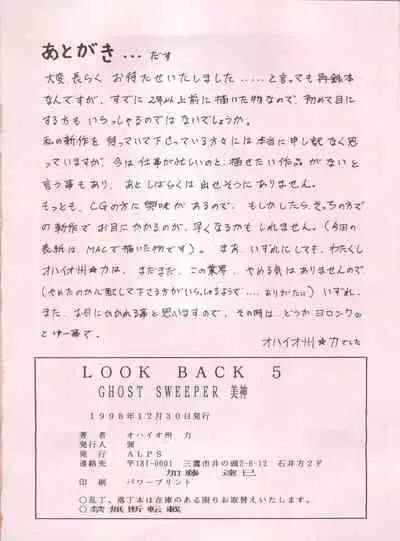 あとがき ・・・ だす
大変 長らく お待たせいたしました ・・・・・ と言っても再録本
なんですが、すでに 2年以上前に描いた物なので、初めて目に
する方も いらっしゃるのでは ないでしょうか。
私の新作を 待っていて下さっている方々には本当に申し訳なく思
っていますが、今は仕事が忙しいのと、描きたい作品 が ない と
言う事もあり、あと しばらく は 出せそうに ありません。
もっとも、CGの方に興味が あるので、もしかしたら、そっちの方で
の新作で お目にかかるのが、早くなるかも しれません。(今回の
表紙は、MACで描いた物です)。 まあ、いずれにしても、わたくし
オハイオ州☆力は、まだまだ、この業界、やめる気は ありませんので
(やめたのか心配して下さる方がいらっしゃるようで ・・・・ ありがたい) いずれ、
また、お目にかかれる事と思いますので、その時は、どうか ヨロシク。
と ゆー事で。
オハイオ州☆力でした
LOOK BACK 5
GHOST SWEEPER 美神
1998年12月30日発行
著者 オハイオ州 力
発行人
発行 ALPS
連絡先 〒181-0001 三鷹市井の頭2-6-12 石井方2F
加藤 達巳
印刷 パワープリント
○乱丁、落丁本は在庫のある限りお取替えいたします。
○禁無断転載